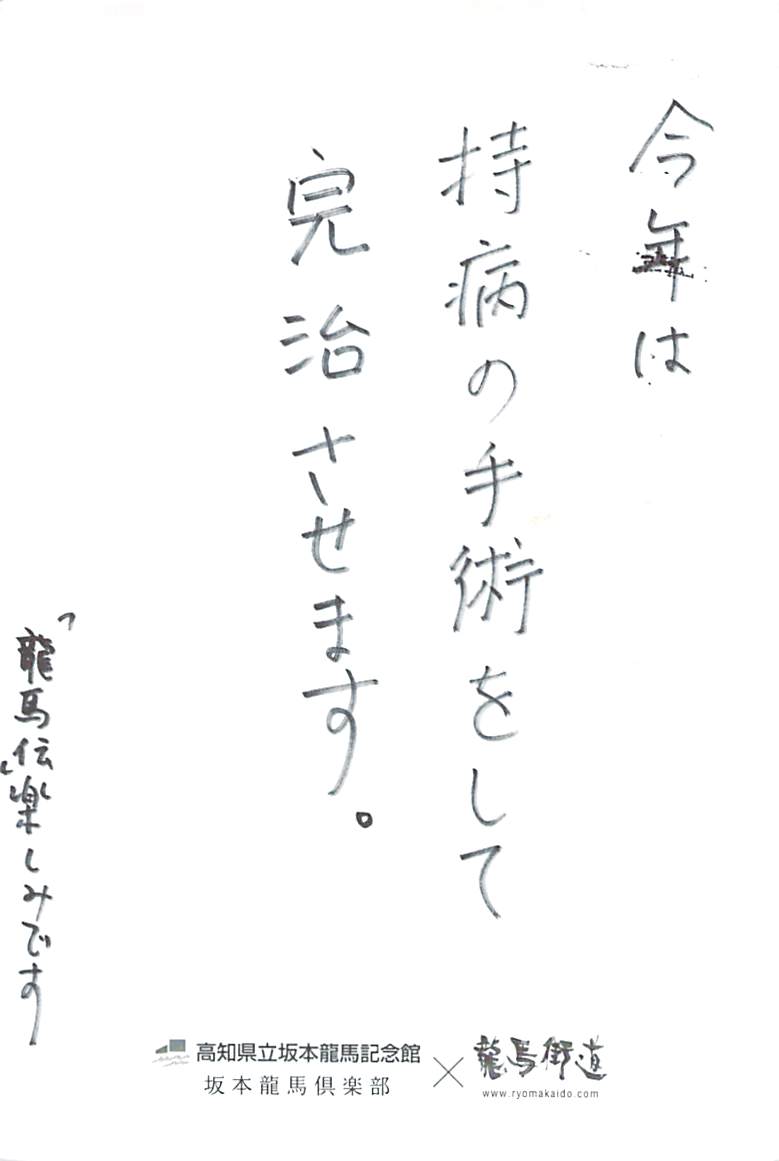 今年は
持病の手術をして
完治させます。
「龍馬伝」楽しみです
高知県立坂本龍馬記念館
坂本龍馬倶楽部
×
龍馬街道
www.ryomakaido.com